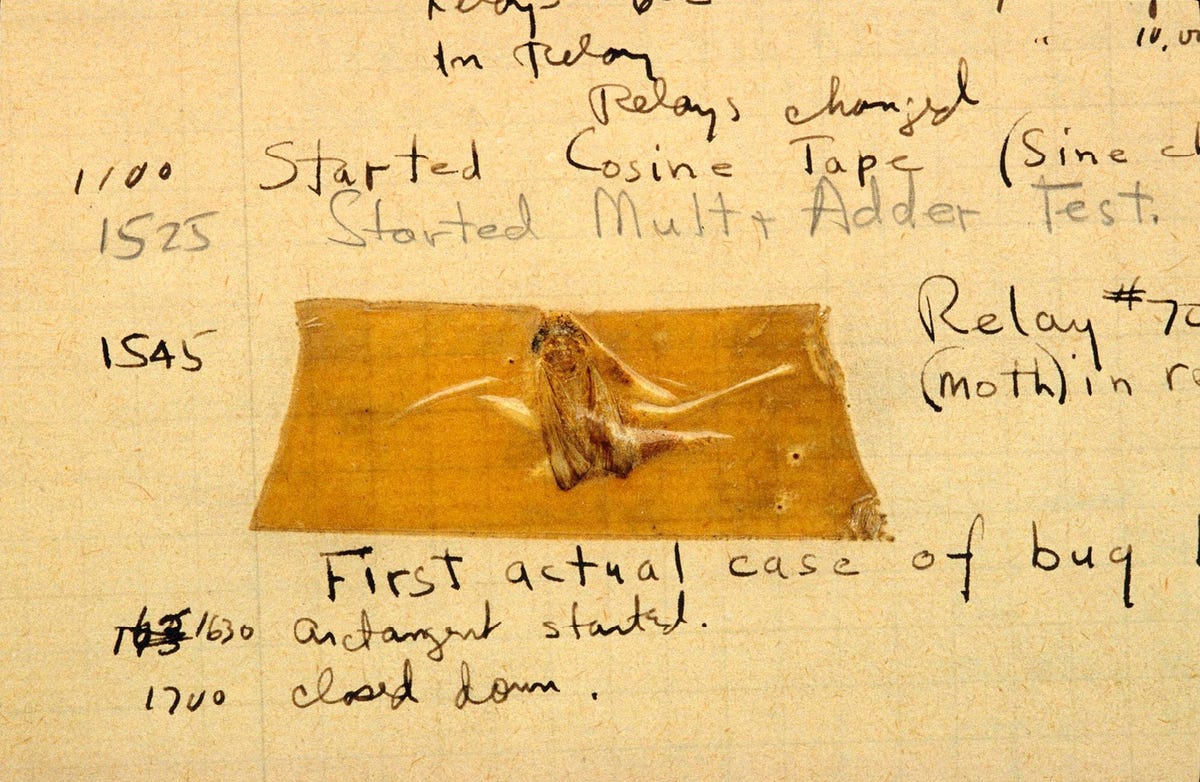 Relays
In Relay
Relays changed
1100 Started Cosine Tape (Sine
1525 Started Mult+ Adder Test.
1545 Relay #70
(moth) in
First actual case of bug
1630 arctangent started.
1700 closed down.